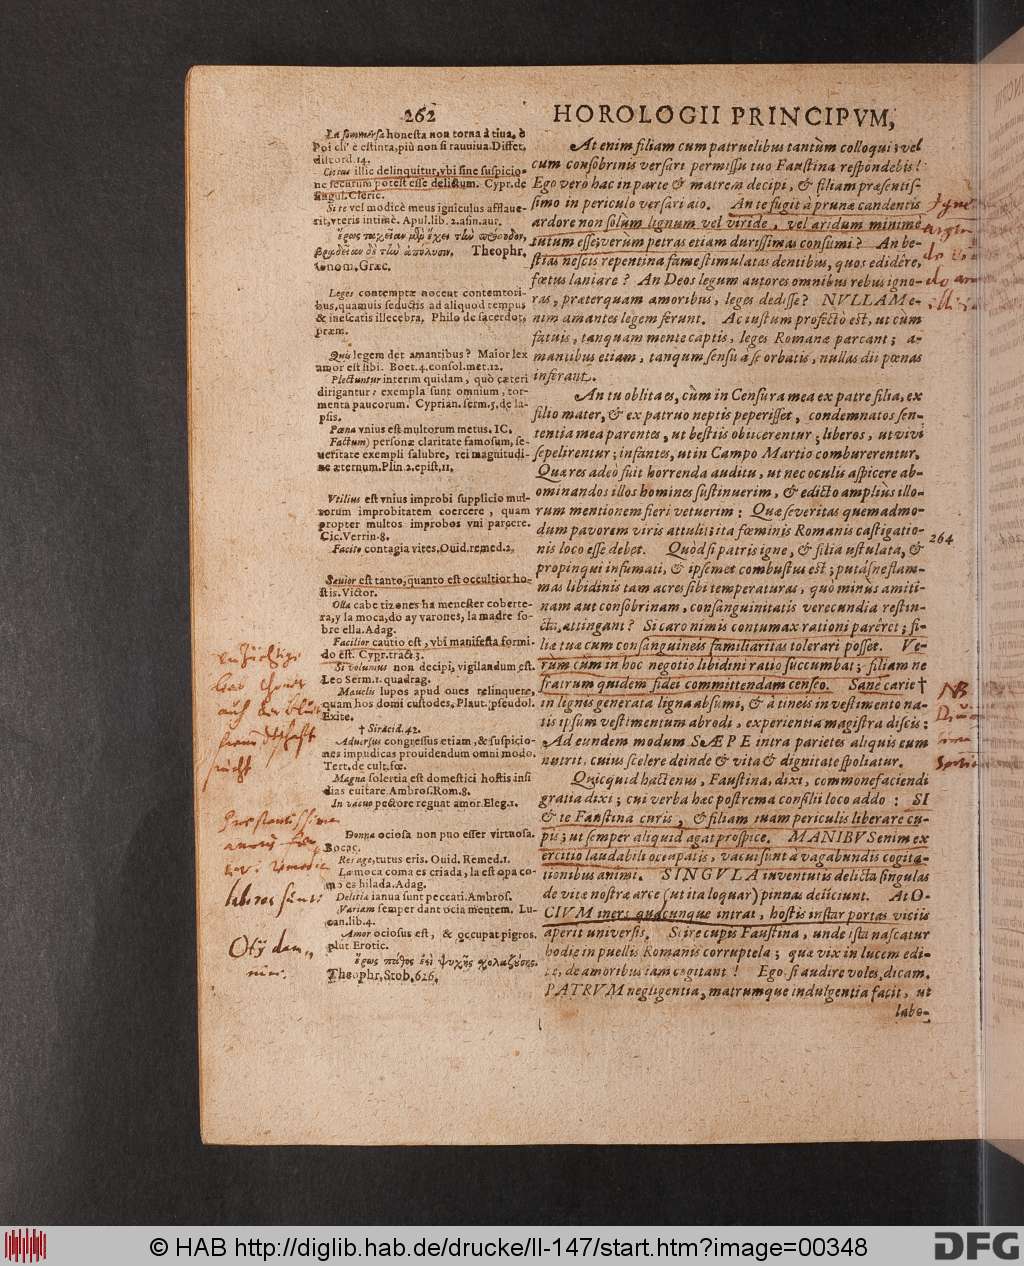 262
HOROLOGII PRINCIPVM,
La sommersa honesta non torna à riua, e
Poi ch' è estinta, più non si rauuiua. Diffet,
discord. 14.
Citius illic delinquitur, vbi sine suspicio-
ne securum potest esse delictum. Cypr. de
singul. Cleric.
Si te vel modicè meus igniculus afflaue-
rit, vreris intimè. Apul. lib. 2. asin. aur.
Theophr.
Gnom. Græc.
Leges contemptæ nocent contemtori-
bus, quamuis seductis ad aliquod tempus
& inescatis illecebra. Philo de sacerdot.
præm.
Quis legem det amantibus? Maior lex
amor est sibi. Boet. 4. consol. met. 12.
Plectuntur interim quidam, quò cæteri
dirigantur: exempla sunt omnium, tor-
menta paucorum. Cyprian. serm. 5. de la-
psis.
Pœna vnius est multorum metus. IC.
Factum) personæ claritate famosum, se-
ueritate exempli salubre, rei magnitudi-
ne æternum. Plin. 2. epist. 11.
Vtilius est vnius improbi supplicio mul-
torum improbitatem coercere, quam
propter multos improbos vni parcere.
Cic. Verrin. 8.
Facito contagia vites. Ouid. remed. 2.
Sæuior est tanto, quanto est occultior ho-
stis. Victor.
Olla cabe tizones ha menester coberte-
ra, y la moca, do ay varones, la madre so-
bre ella. Adag.
Facilior cautio est, vbi manifesta formi-
do est. Cypr. tract. 3.
Si volumus non decipi, vigilandum est.
Leo Serm. 1. quadrag.
Mauelis lupos apud oues relinquere,
quam hos domi custodes. Plaut. pseudol.
Exite.
† Siracid. 42.
Aduersus congressus etiam, & suspicio-
nes impudicas prouidendum omni modo.
Tert. de cult. fœ.
Magna solertia est domestici hostis insi
dias euitare. Ambros. Rom. 8.
In vacuo pectore regnat amor. Eleg. 1.
Donna ociosa non puo esser virtuosa.
Bocac.
Res age, tutus eris. Ouid. Remed. 1.
La moca coma es criada, la estopa co-
mo es hilada. Adag.
Delitia ianua sunt peccati. Ambros.
Variam semper dant ocia mentem. Lu-
can. lib. 4.
Amor ociosus est, & occupat pigros.
plut Erotic.
ἔρως πάθος ἐστὶ ψυχῆς σχολαζούσης.
Theophr. Stob. 626.
At enim filiam cum patruelibus tantùm colloqui; vel
cum consobrinis versari permissu tuo Faustina respondebis!
Ego verò hac in parte & matrem decipi, & filiam præsentis-
simo in periculo versari aio. An te fugit à prunæ candentis
ardore non solùm lignum vel viride, vel aridum minimè
tutum esse; verum petras etiam durissimas consumi? An be-
stias nescis repentina fame stimulatas dentibus, quos edidêre,
fœtus laniare? An Deos legum autores omnibus rebus igno-
ras, præterquam amoribus, leges dedisse? NVLLAM e-
nim amantes legem ferunt. Ac iustum profectò est, ut cùm
fatuis, tanquam mente captis, leges Romanæ parcant; a-
mantibus etiam, tanqum sensu a se orbatis, nullas dii pœnas
inferant.
An tu oblita es, cùm in Censura mea ex patre filia, ex
filio mater, & ex patruo neptis peperisset, condemnatos sen-
tentia mea parentes, ut bestiis obiicerentur; liberos, ut vivi
sepelirentur; infantes, ut in Campo Martio comburerentur.
Quæ res adeò fuit horrenda auditu, ut nec oculis aspicere ab-
ominandos illos homines sustinuerim, & edicto ampliùs illo-
rum mentionem fieri vetuerim: Quæ severitas quemadmo-
dum pavorem viris attulit; ita fœminis Romanis castigatio-
nis loco esse debet. Quòd si patris igne, & filia ustulata, &
propinqui infumati, & ipsemet combustus est; putásne flam-
mas libidinis tam acres sibi temperaturas, quò minùs amiti-
nam aut consobrinam, consanguinitatis verecundia restin-
cta, attingant? Si caro nimis contumax rationi parêret; fi-
liæ tuæ cum consanguineis familiaritas tolerari posset. Ve-
rùm cum in hoc negotio libidini ratio succumbat; filiam ne
fratrum quidem fidei committendam censeo. Sanè carie †
in lignis generata ligna absumi, & à tineis in vestimento na-
tis ipsum vestimentum abrodi, experientia magistra discis:
Ad eundem modum SÆPE intra parietes aliquis eum
nutrit, cuius scelere deinde & vita & dignitate spoliatur.
Quicquid hactenus, Faustina, dixi, commonefaciendi
gratia dixi; cui verba hæc postrema consilii loco addo: SI
& te Faustina curis, & filiam tuam periculis liberare cu-
pis; ut semper aliquid agat prospice. MANIBVS enim ex
ercitio laudabili occupatis, vacui sunt à vagabundis cogita-
tionibus animi. SINGVLA inventutis delicta singulas
de vitæ nostræ arce (ut ita loquar) pinnas deiiciunt. At O-
CIVM iners quacunque intrat, hostis instar portas vitiis
aperit universis. Scire cupis Faustina, unde ista nascatur
hodie in puellis Romanis corruptela; quæ vix in lucem edi-
tæ, de amoribus iam cogitant! Ego, si audire voles, dicam.
PATRVM negligentia, matrumque indulgentia facit, ut
labo-
264
NB
labores sunt:
Otÿ dam-
© HAB http://diglib.hab.de/drucke/ll-147/start.htm?image=00348
DFG